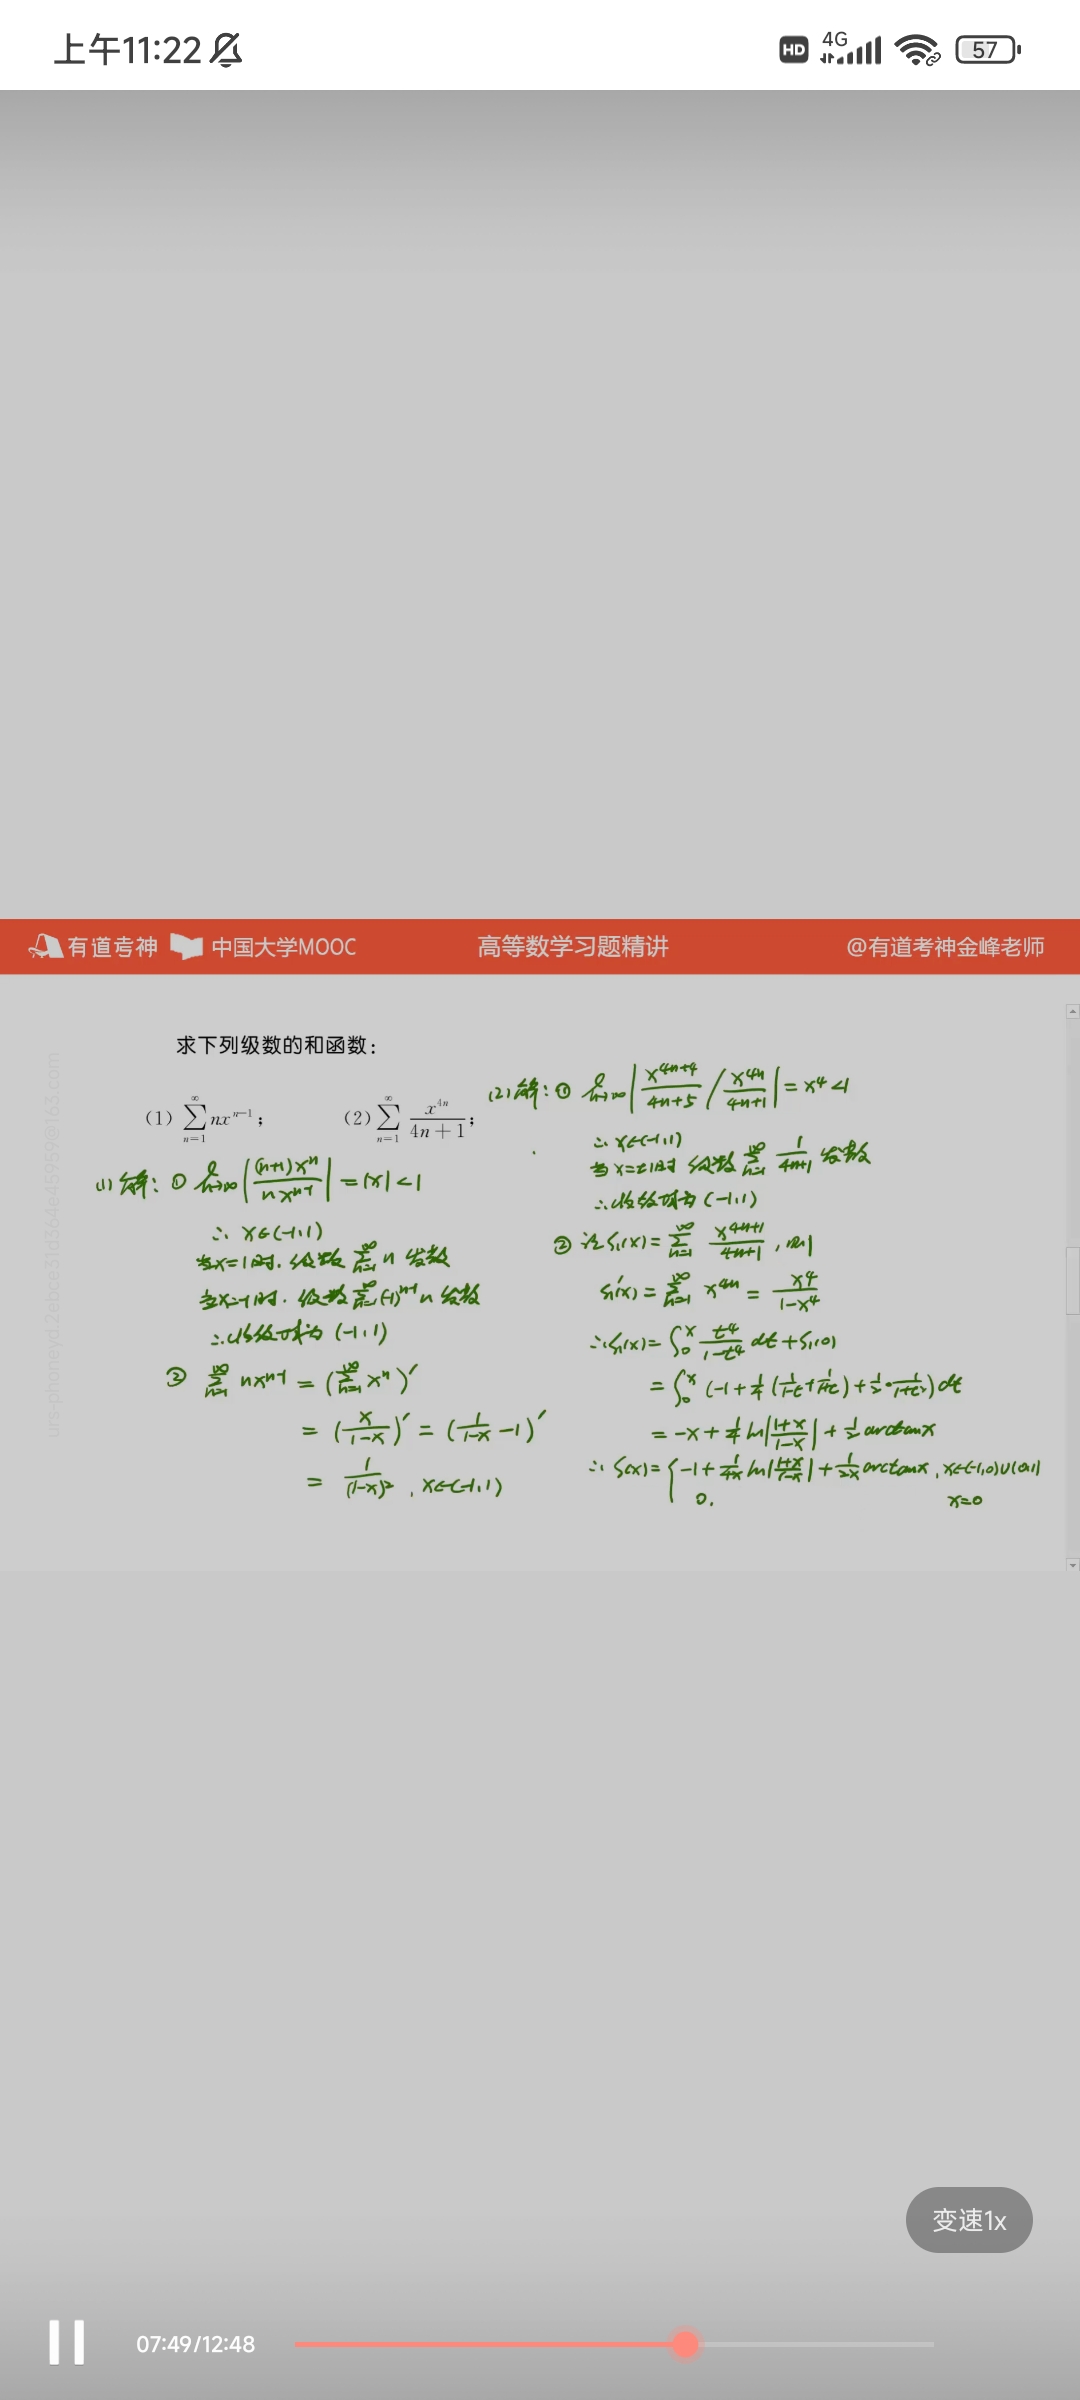 上午11:22 HD 4G 57
有道考神 中国大学MOOC 高等数学习题精讲 @有道考神金峰老师
求下列级数的和函数：
（1）∑_{n=1}^{∞} nx^{n-1}； （2）∑_{n=1}^{∞} x^{4n}/(4n+1)；
(1)解：① lim_{n→∞} |(n+1)x^n / nx^{n-1}| = |x| < 1
∴ x∈(-1,1)
当x=1时，级数 ∑_{n=1}^{∞} n 发散
当x=-1时，级数 ∑_{n=1}^{∞} (-1)^{n-1} n 发散
∴收敛域为 (-1,1)
② ∑_{n=1}^{∞} nx^{n-1} = (∑_{n=1}^{∞} x^n)'
= (x/(1-x))' = (1/(1-x) - 1)'
= 1/(1-x)², x∈(-1,1)
(2)解：① lim_{n→∞} |x^{4n+4}/(4n+5) / x^{4n}/(4n+1)| = x⁴ < 1
∴ x∈(-1,1)
当x=±1时 级数 ∑_{n=1}^{∞} 1/(4n+1) 发散
∴收敛域为 (-1,1)
② 设S₁(x) = ∑_{n=1}^{∞} x^{4n+1}/(4n+1), 则
S₁'(x) = ∑_{n=1}^{∞} x^{4n} = x⁴/(1-x⁴)
∴S₁(x) = ∫₀^x t⁴/(1-t⁴) dt + S₁(0)
= ∫₀^x (-1 + 1/4 (1/(1-t) + 1/(1+t)) + 1/2 · 1/(1+t²)) dt
= -x + 1/4 ln|(1+x)/(1-x)| + 1/2 arctanx
∴ S(x) = { -1 + 1/4x ln|(1+x)/(1-x)| + 1/2x arctanx, x∈(-1,0)∪(0,1)
0, x=0
变速1x
07:49/12:48